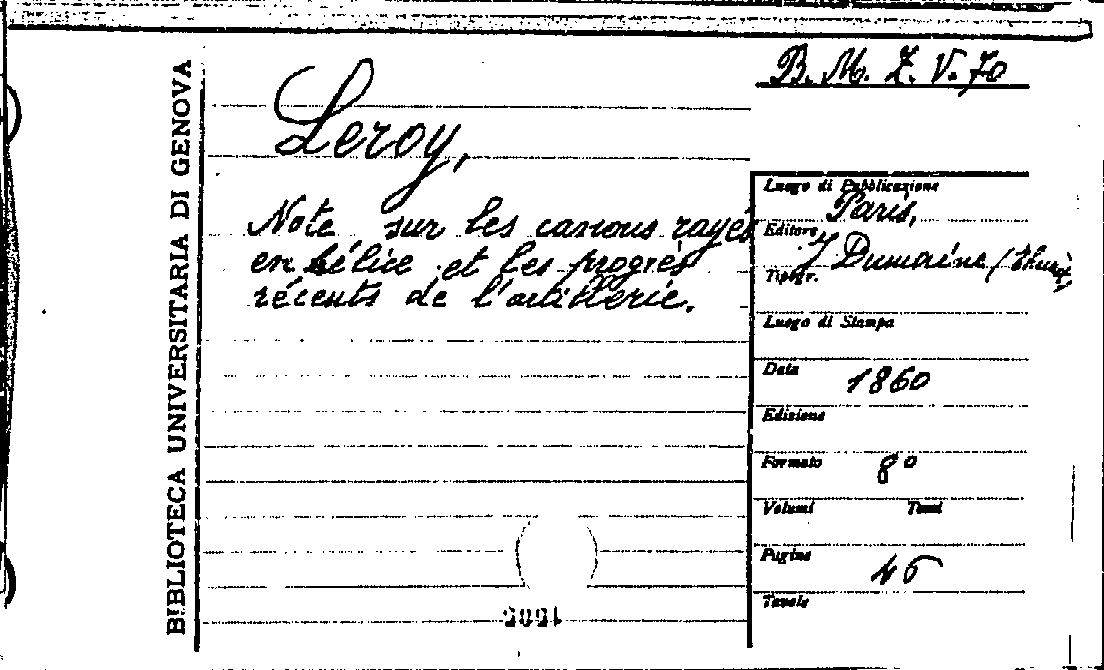 BIBLIOTECA UNIVERSITARIA DI GENOVA
B. M. Z. V. 70
Leroy,
Note sur les canons rayés
en hélice et les progrès
récents de l'artillerie.
Luogo di Pubblicazione
Paris,
Editore
J Dumaine
Tipogr.
Luogo di Stampa
Data
1860
Edizione
Formato
8º
Volumi Tomi
Pagine
46
Tavole